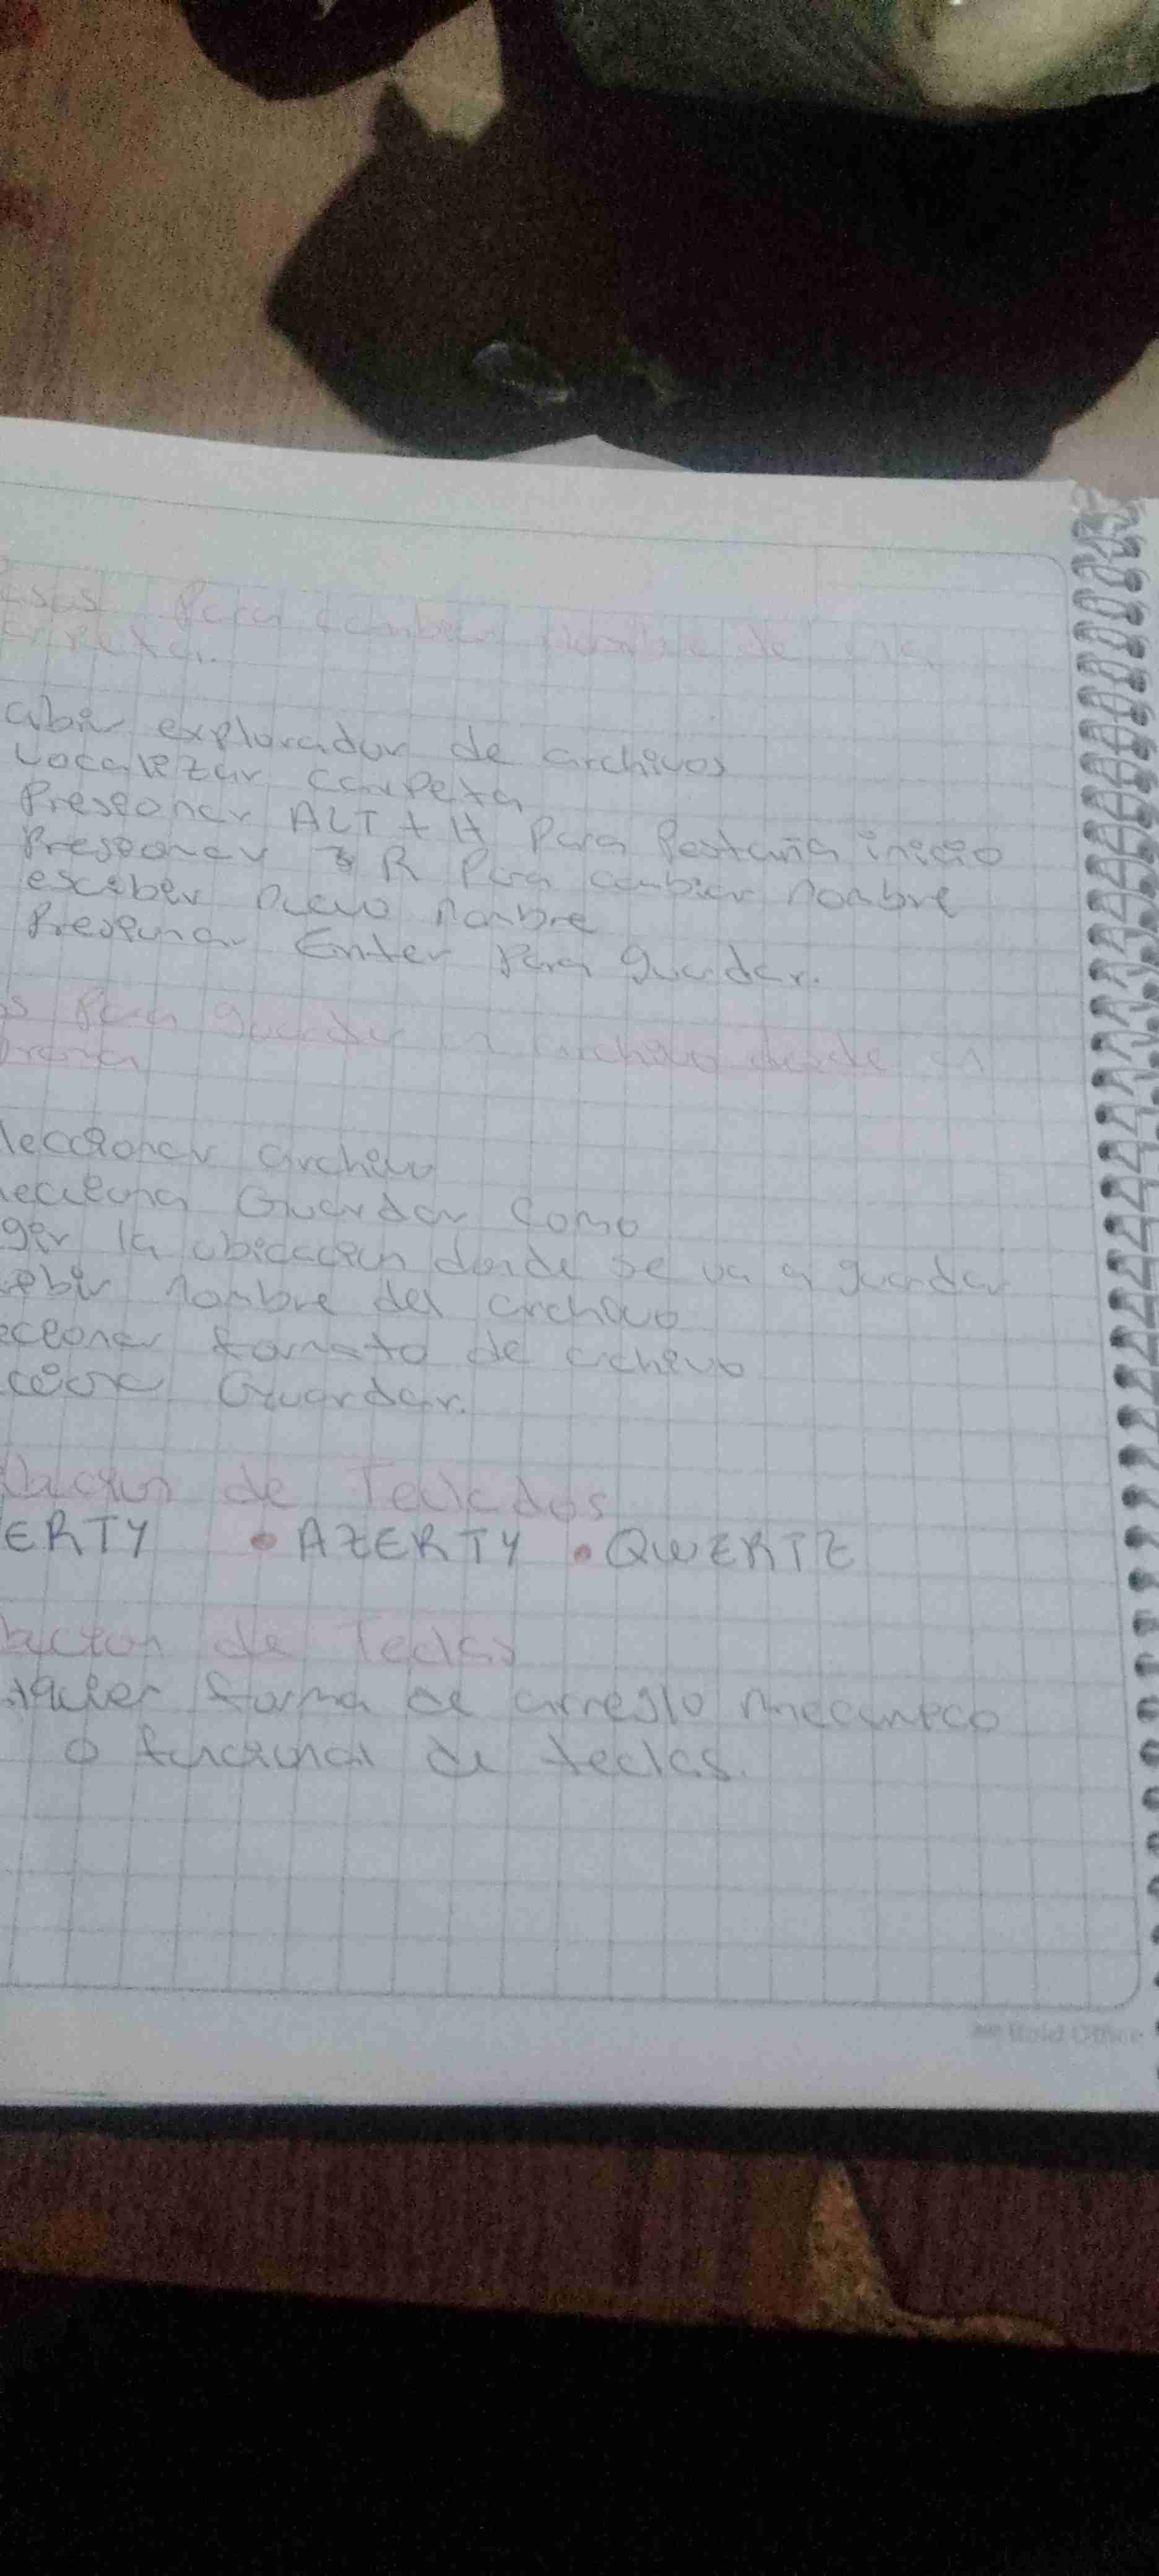 Para cambiar nombre de una
arpeta.
abrir explorador de archivos
Localizar carpeta
Presionar ALT + H Para Pestaña inicio
Presionar R Para cambiar nombre
escriber nuevo nombre
Presionar Enter Para guardar.
os Para guardar un archivo desde un
leccionar archivo
Guardar Como
ger la ubicacion donde se va a guardar
ebir nombre del archivo
ccionar formato de archivo
Guardar.
de Teclados
ERTY • AZERTY • QWERTZ
de Teclas
forma de arreglo mecanico
o funcional de teclas.
Bold Office